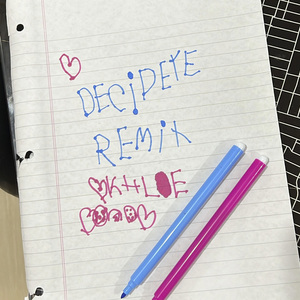 DECiDETE
REMiX
KHLOE